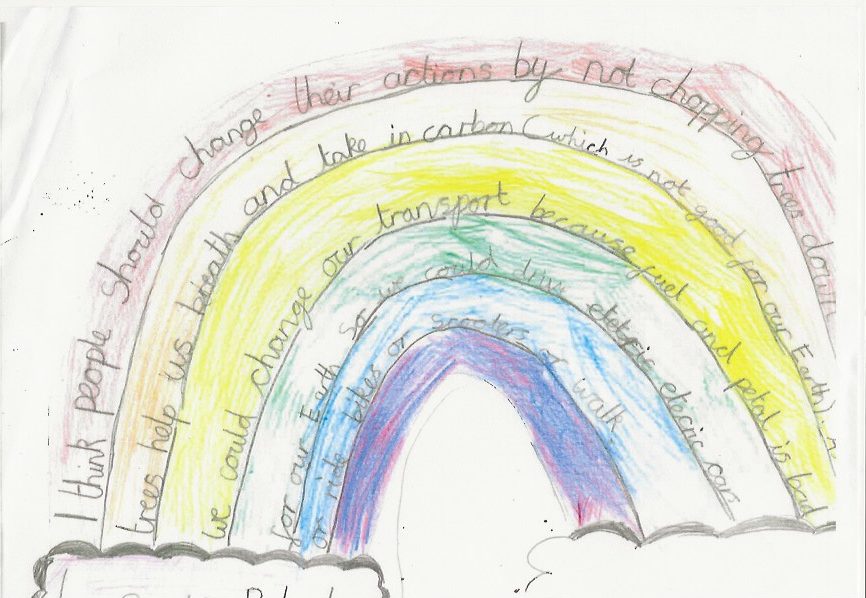 I think people should change their actions by not chopping trees down
trees help us breath and take in carbon (which is not good for our Earth).
we could change our transport because fuel and petal is bad
for our Earth so we could drive elecric cars
or ride bikes or scooters or walk.